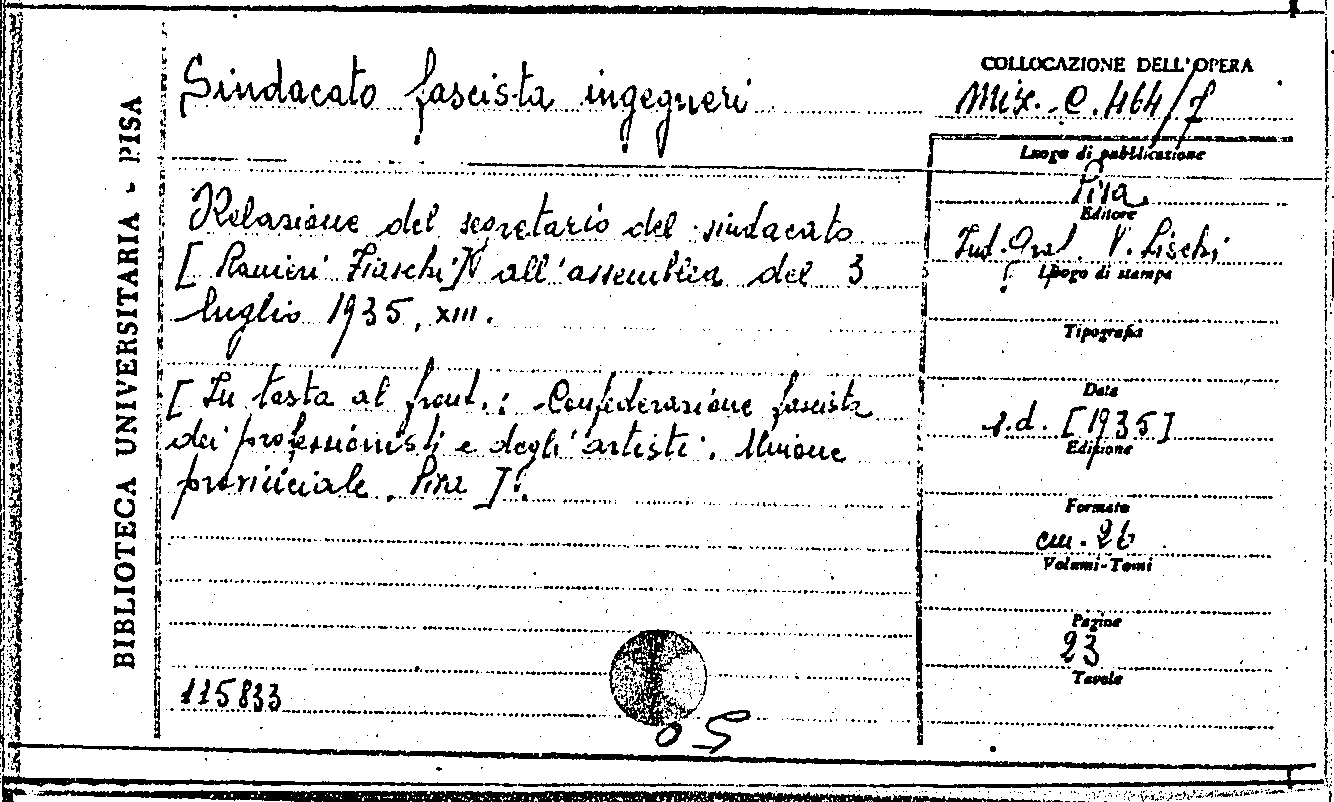 BIBLIOTECA UNIVERSITARIA - PISA
Sindacato fascista ingegneri
Relazione del segretario del sindacato
[Ranieri Fiaschi] all'assemblea del 3
luglio 1935, XIII.
[In testa al front.: Confederazione fascista
dei professionisti e degli artisti. Unione
provinciale. Pisa].
115833
COLLOCAZIONE DELL'OPERA
Misc. C. 464/7
Luogo di pubblicazione
Pisa,
Editore
Ind. Graf. V. Lischi
Luogo di stampa
Tipografia
Data
s.d. [1935]
Edizione
Formato
cm. 26
Volumi-Tomi
Pagine
23
Tavole